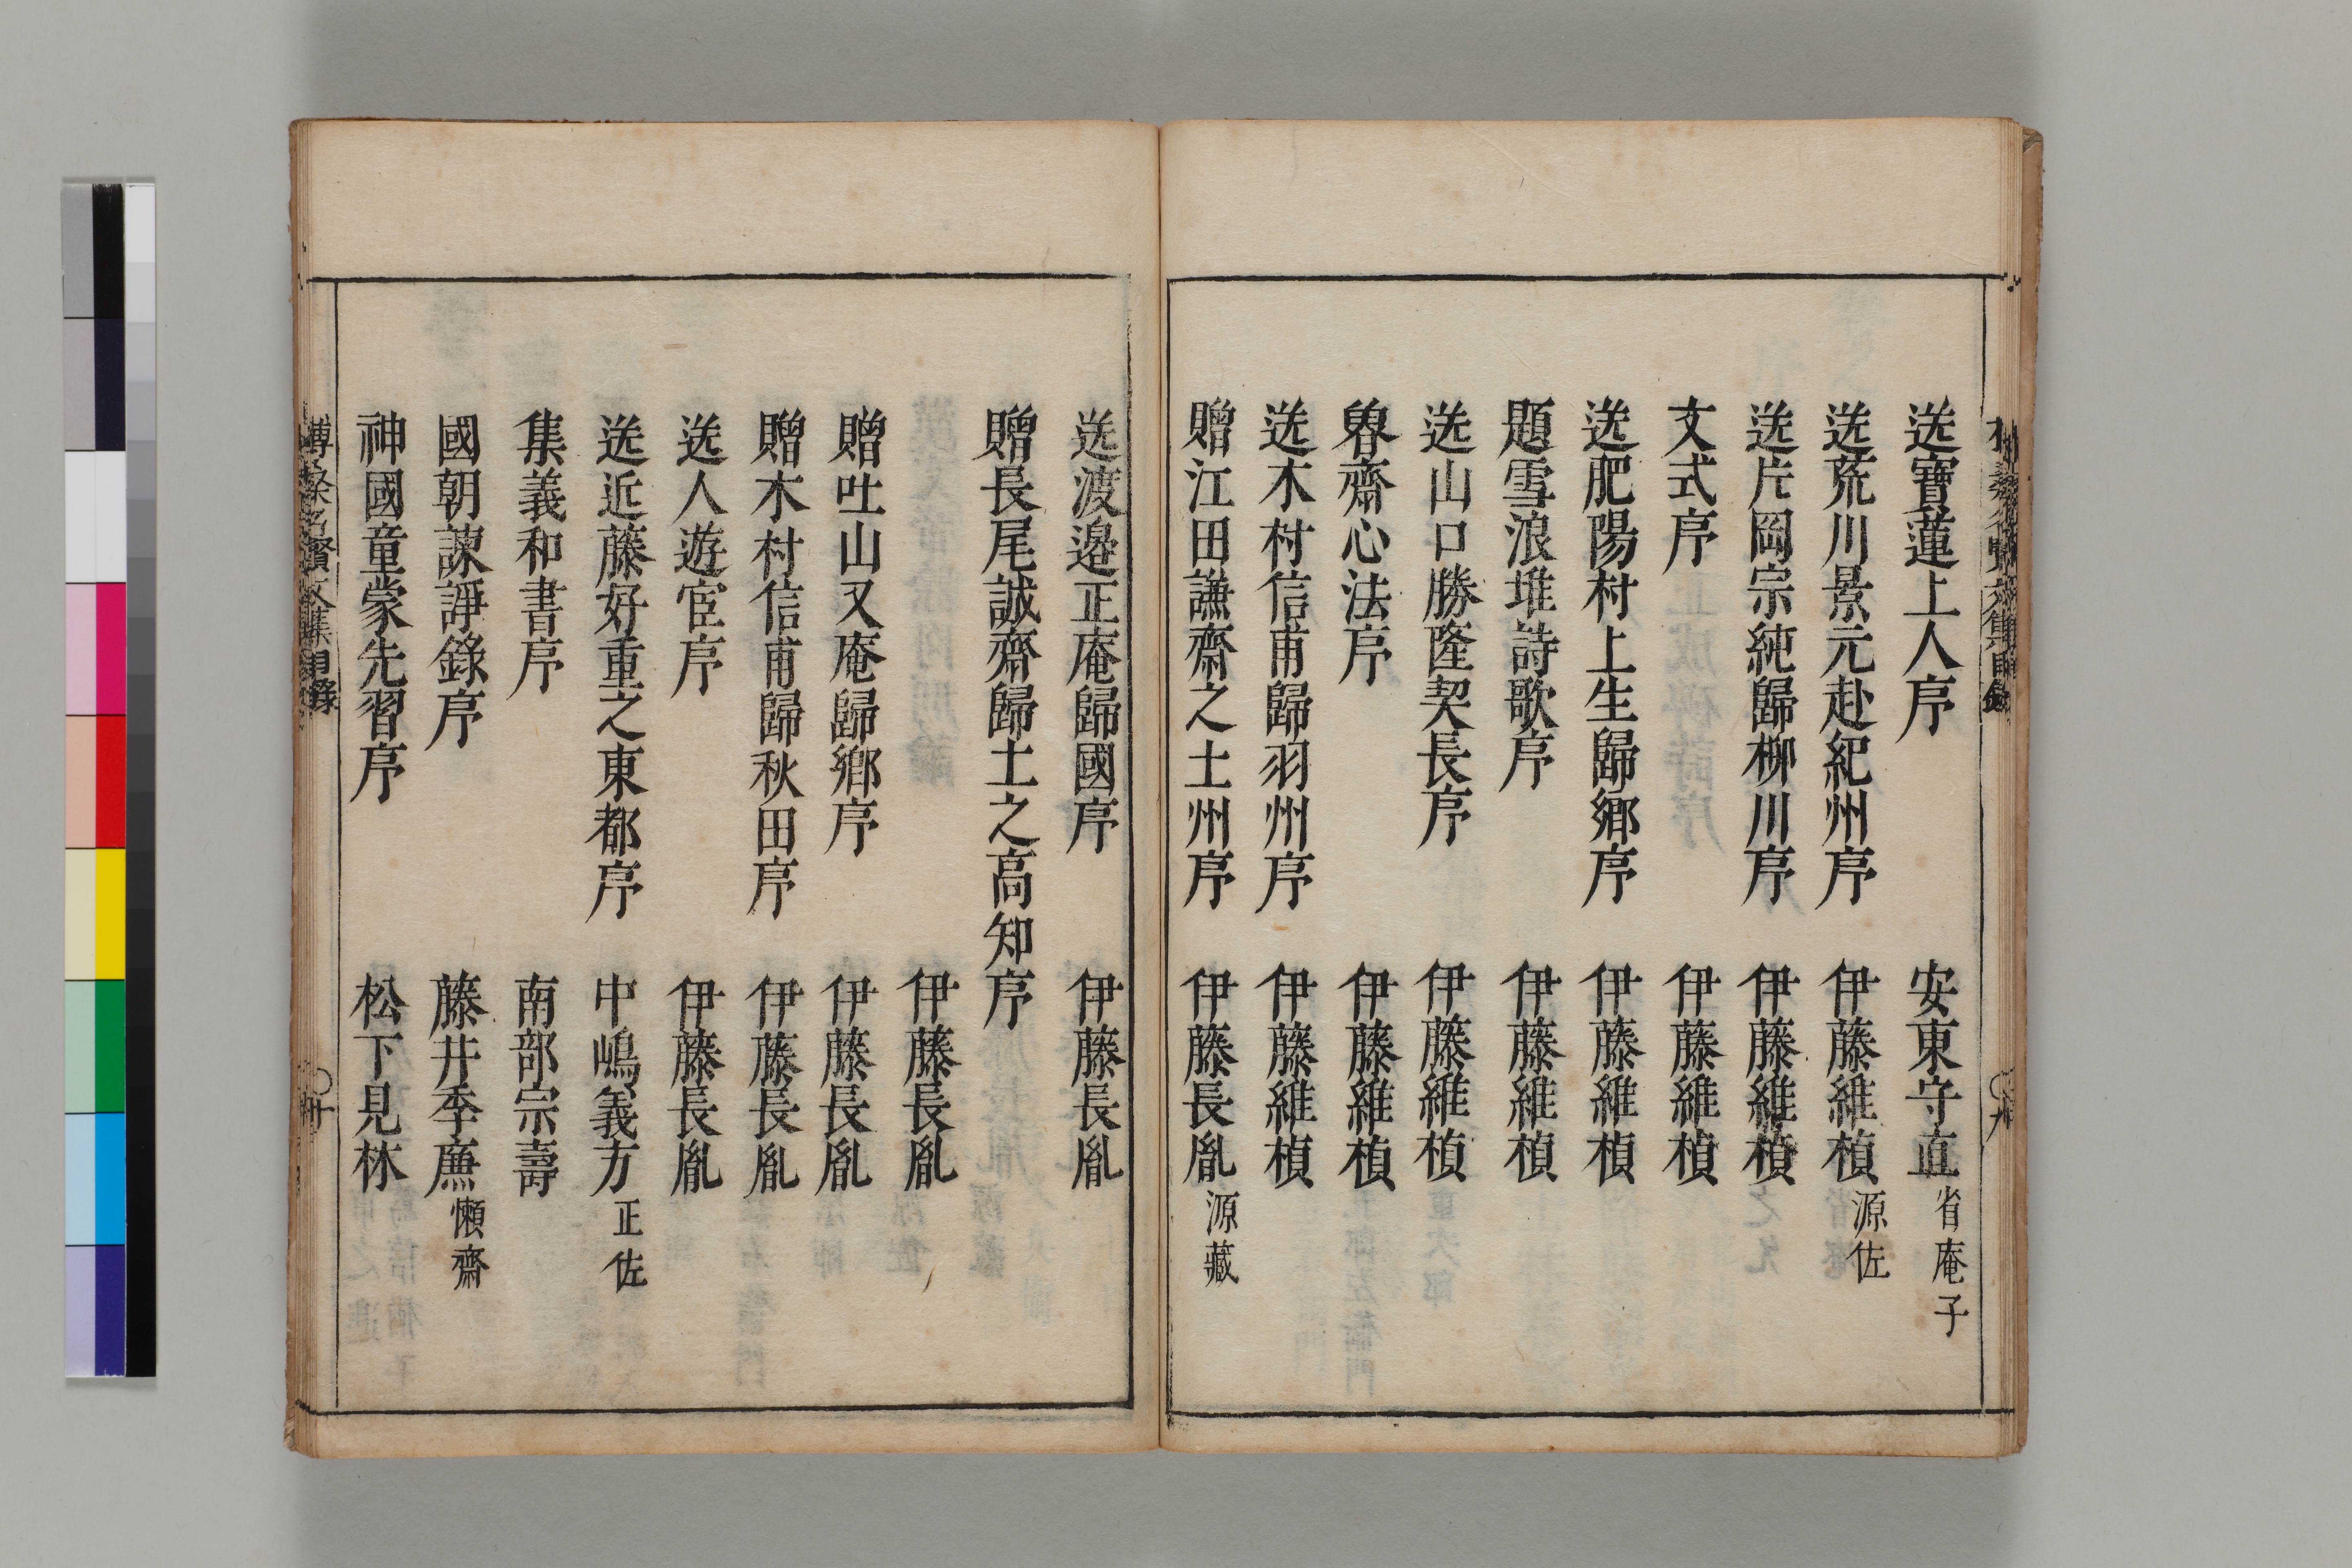 送寶蓮上人序 安東守直 省庵子
送荒川景元赴紀州序 伊藤維楨 源佐
送片岡宗純歸柳川序 伊藤維楨
文式序 伊藤維楨
送肥陽村上生歸鄉序 伊藤維楨
題雪浪堆詩歌序 伊藤維楨
送山口勝隆契長序 伊藤維楨
魯齋心法序 伊藤維楨
送木村信甫歸羽州序 伊藤維楨
贈江田謙齋之土州序 伊藤長胤 源藏
送渡邉正庵歸國序 伊藤長胤
贈長尾誠齋歸土之高知序
伊藤長胤
贈吐山又庵歸鄉序 伊藤長胤
贈木村信甫歸秋田序 伊藤長胤
送人遊宦序 伊藤長胤
送近藤好重之東都序 中嶋義方 正佐
集義和書序 南部宗壽
國朝諫諍錄序 藤井季廉 懶齋
神國童蒙先習序 松下見林
搏桑名賢文集目錄